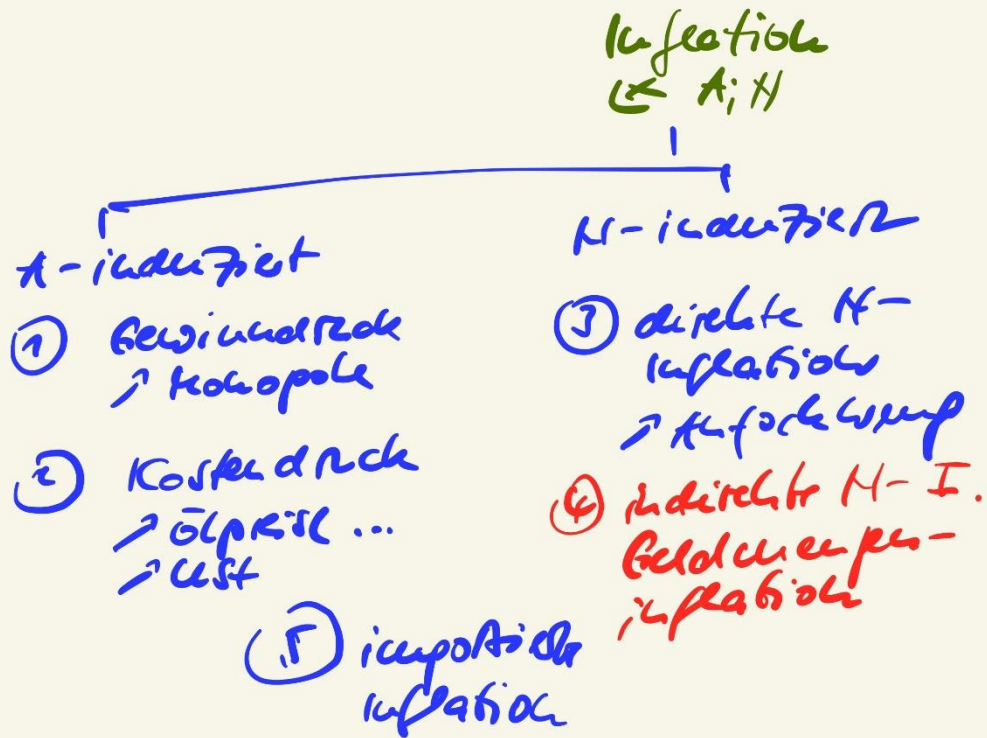 Inflation
← A; N
A-induziert
N-induziert
① Gewinndruck
↗ Monopole
② Kostendruck
↗ Ölpreise ...
↗ USt
③ direkte N-
Inflation
↗ Aufschwung
④ indirekte N-I.
Geldmengen-
inflation
⑤ importierte
Inflation